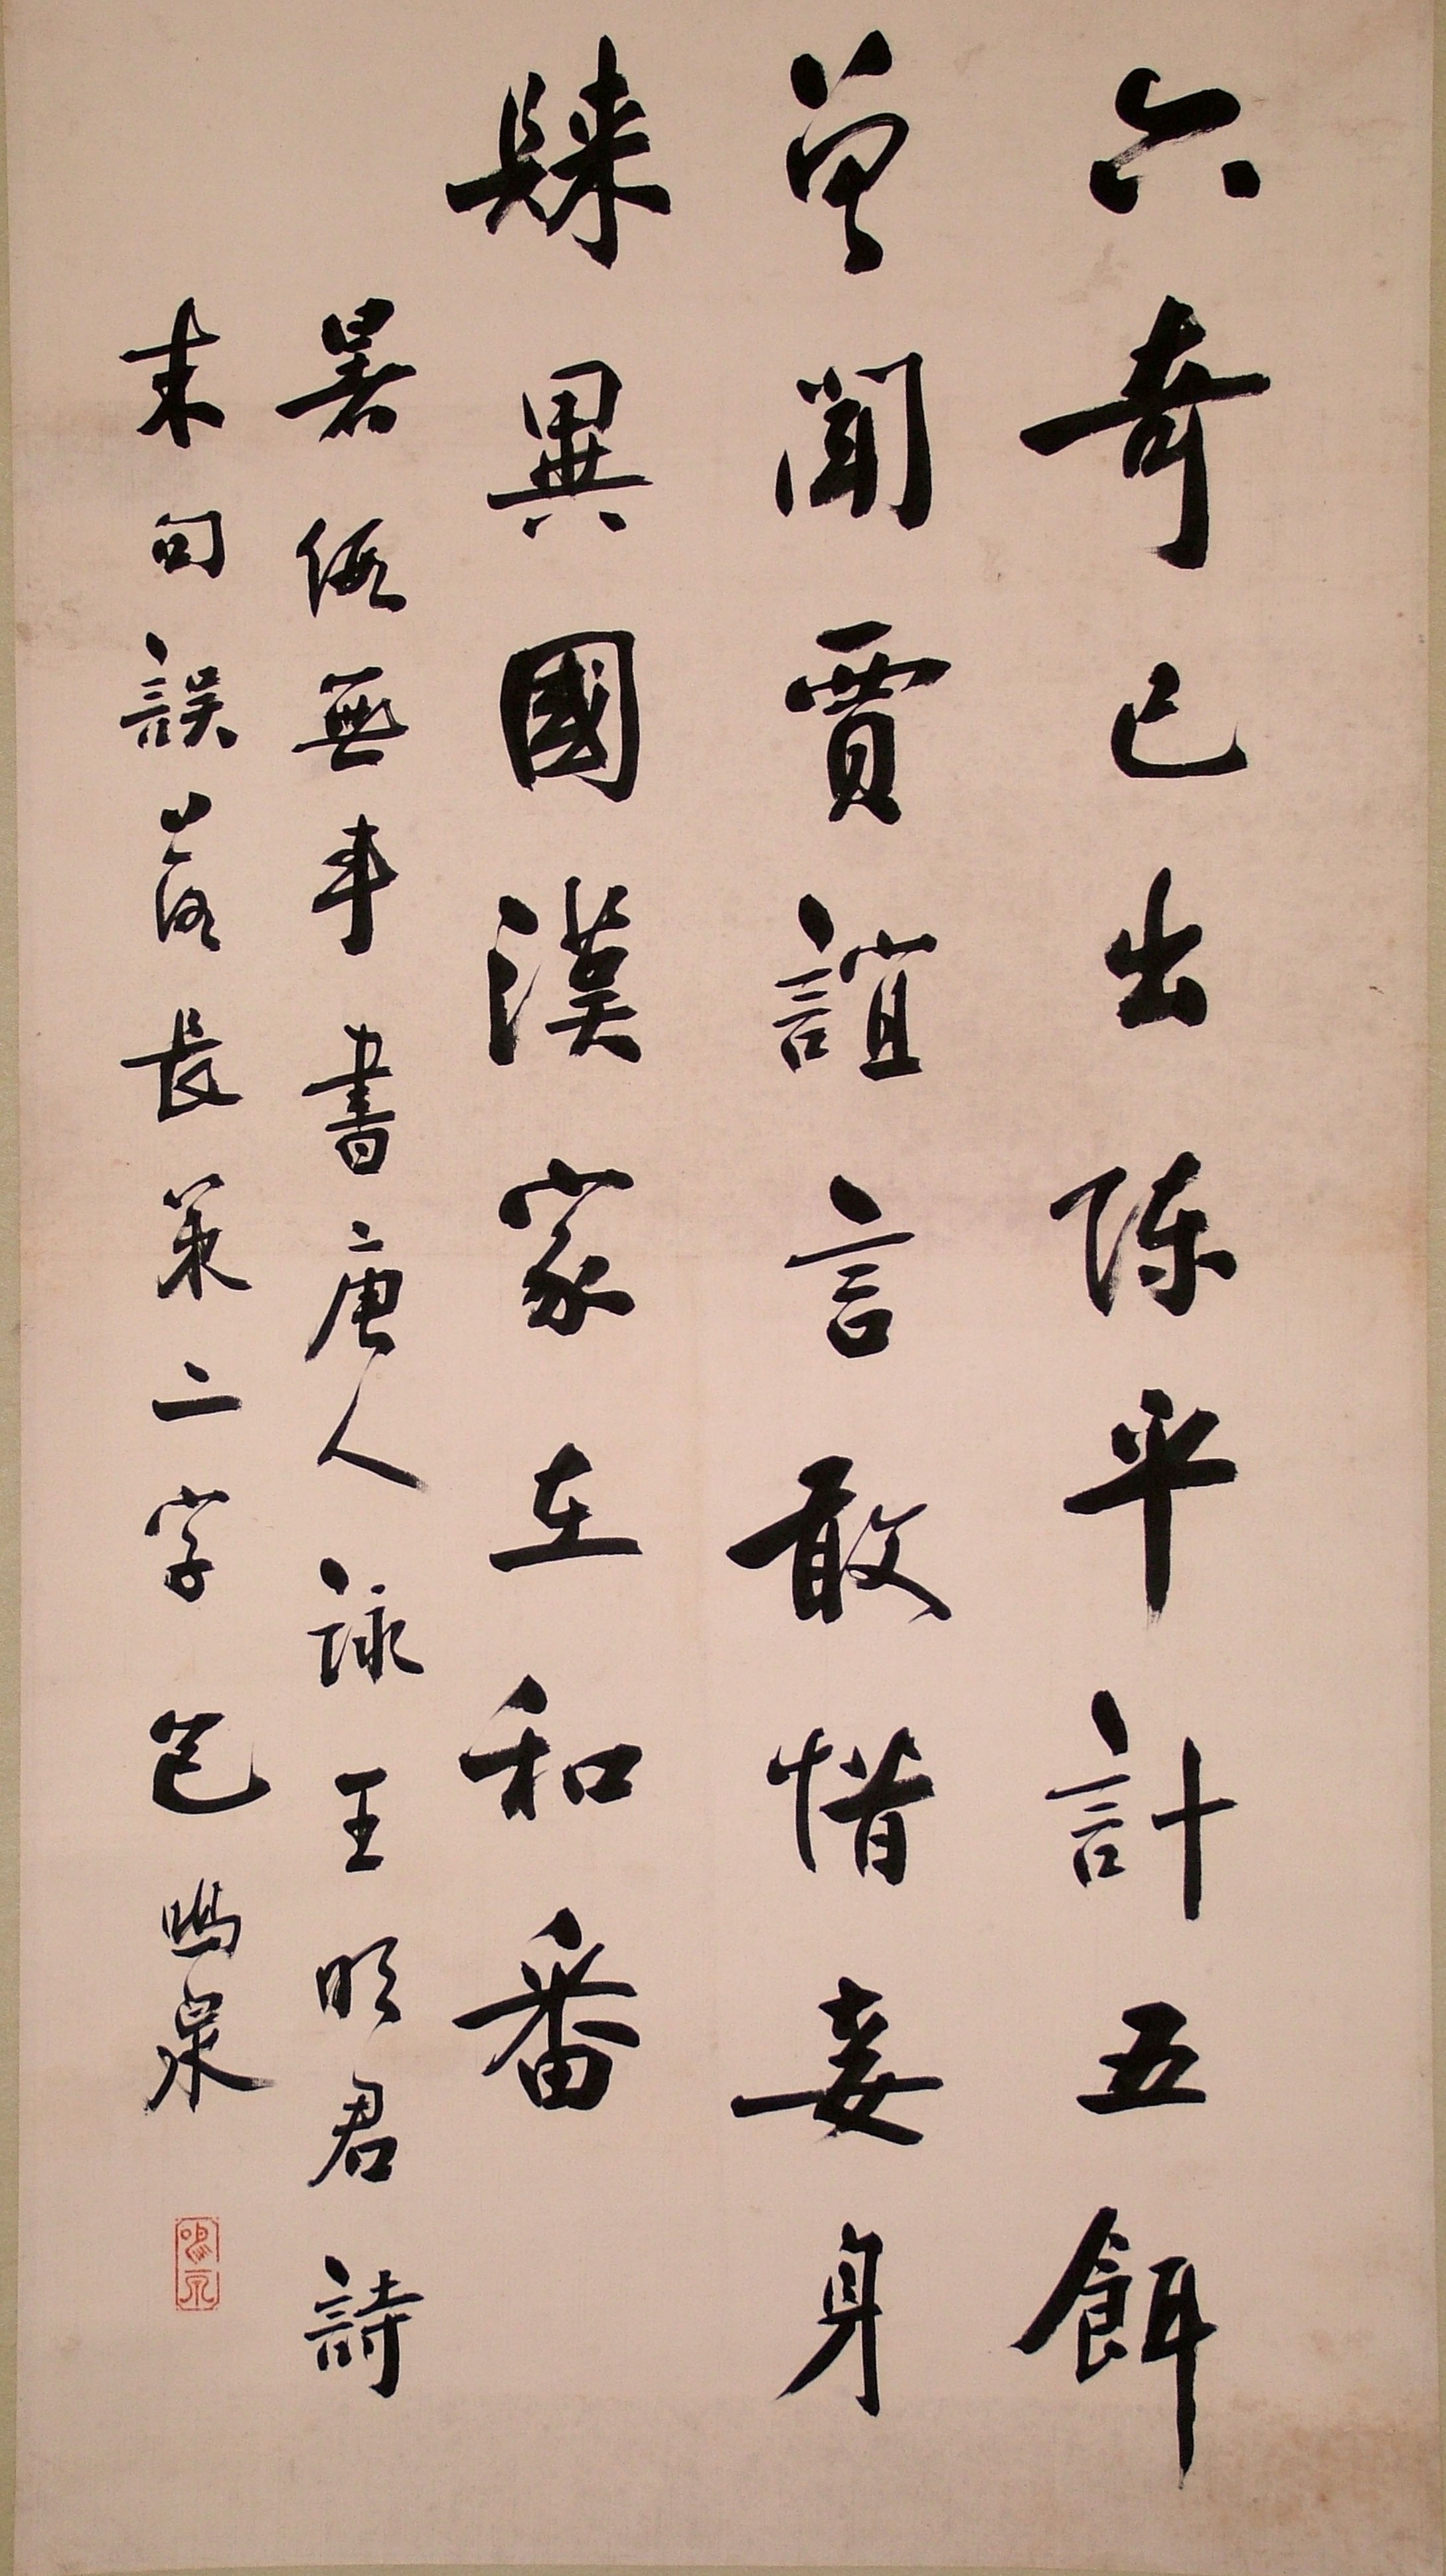 六奇已出陳平計五餌
曾聞賈誼言敢惜妾身
歸異國漢家在和番
暑假無事書唐人詠王明君詩
末句誤落長策二字包鳴泉
鳴泉